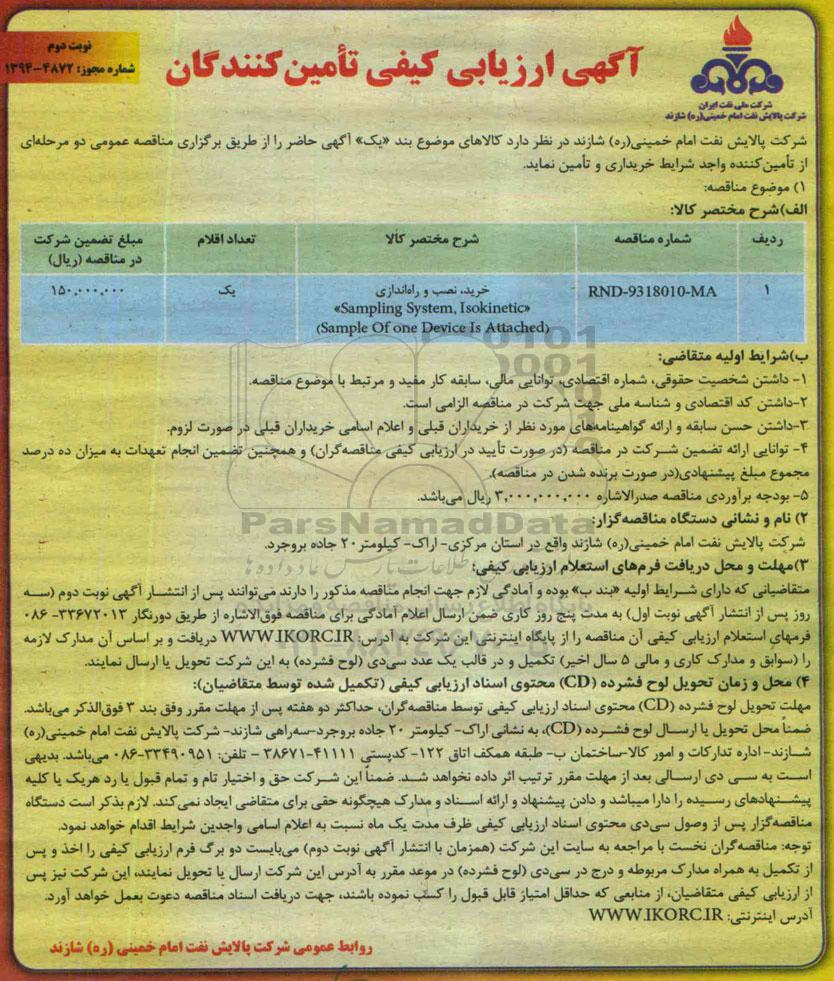 نوبت دوم
شماره مجوز: ۴۸۷۲-۱۳۹۴
آگهی ارزیابی کیفی تأمین‌کنندگان
شرکت ملی نفت ایران
شرکت پالایش نفت امام خمینی(ره) شازند
شرکت پالایش نفت امام خمینی(ره) شازند در نظر دارد کالاهای موضوع بند «یک» آگهی حاضر را از طریق برگزاری مناقصه عمومی دو مرحله‌ای
از تأمین‌کننده واجد شرایط خریداری و تأمین نماید.
۱) موضوع مناقصه:
الف)شرح مختصر کالا:
ردیف شماره مناقصه شرح مختصر کالا تعداد اقلام مبلغ تضمین شرکت
در مناقصه (ریال)
۱ RND-9318010-MA خرید، نصب و راه‌اندازی یک ۱۵۰,۰۰۰,۰۰۰
«Sampling System, Isokinetic»
(Sample Of one Device Is Attached)
ب)شرایط اولیه متقاضی:
۱- داشتن شخصیت حقوقی، شماره اقتصادی، توانایی مالی، سابقه کار مفید و مرتبط با موضوع مناقصه.
۲-داشتن کد اقتصادی و شناسه ملی جهت شرکت در مناقصه الزامی است.
۳-داشتن حسن سابقه و ارائه گواهینامه‌های مورد نظر از خریداران قبلی و اعلام اسامی خریداران قبلی در صورت لزوم.
۴- توانایی ارائه تضمین شرکت در مناقصه (در صورت تأیید در ارزیابی کیفی مناقصه‌گران) و همچنین تضمین انجام تعهدات به میزان ده درصد
مجموع مبلغ پیشنهادی(در صورت برنده شدن در مناقصه).
۵- بودجه برآوردی مناقصه صدرالاشاره ۳,۰۰۰,۰۰۰,۰۰۰ ریال می‌باشد.
ParsNamadData
۲) نام و نشانی دستگاه مناقصه‌گزار:
شرکت پالایش نفت امام خمینی(ره) شازند واقع در استان مرکزی- اراک- کیلومتر۲۰ جاده بروجرد.
۳)مهلت و محل دریافت فرم‌های استعلام ارزیابی کیفی:
متقاضیانی که دارای شرایط اولیه «بند ب» بوده و آمادگی لازم جهت انجام مناقصه مذکور را دارند می‌توانند پس از انتشار آگهی نوبت دوم (سه
روز پس از انتشار آگهی نوبت اول) به مدت پنج روز کاری ضمن ارسال اعلام آمادگی برای مناقصه فوق‌الاشاره از طریق دورنگار ۳۳۶۷۲۰۱۳- ۰۸۶
فرمهای استعلام ارزیابی کیفی آن مناقصه را از پایگاه اینترنتی این شرکت به آدرس: WWW.IKORC.IR دریافت و بر اساس آن مدارک لازمه
را (سوابق و مدارک کاری و مالی ۵ سال اخیر) تکمیل و در قالب یک عدد سی‌دی (لوح فشرده) به این شرکت تحویل یا ارسال نمایند.
۴) محل و زمان تحویل لوح فشرده (CD) محتوی اسناد ارزیابی کیفی (تکمیل شده توسط متقاضیان):
مهلت تحویل لوح فشرده (CD) محتوی اسناد ارزیابی کیفی توسط مناقصه‌گران، حداکثر دو هفته پس از مهلت مقرر وفق بند ۳ فوق‌الذکر می‌باشد.
ضمناً محل تحویل یا ارسال لوح فشرده (CD)، به نشانی اراک- کیلومتر ۲۰ جاده بروجرد-سه‌راهی شازند- شرکت پالایش نفت امام خمینی(ره)
شازند- اداره تدارکات و امور کالا-ساختمان ب- طبقه همکف اتاق ۱۲۲- کدپستی ۴۱۱۱۱-۳۸۶۷۱ – تلفن: ۳۳۴۹۰۹۵۱-۰۸۶ می‌باشد. بدیهی
است به سی دی ارسالی بعد از مهلت مقرر ترتیب اثر داده نخواهد شد. ضمناً این شرکت حق و اختیار تام و تمام قبول یا رد هریک یا کلیه
پیشنهادهای رسیده را دارا میباشد و دادن پیشنهاد و ارائه اسناد و مدارک هیچگونه حقی برای متقاضی ایجاد نمی‌کند. لازم بذکر است دستگاه
مناقصه‌گزار پس از وصول سی‌دی محتوی اسناد ارزیابی کیفی ظرف مدت یک ماه نسبت به اعلام اسامی واجدین شرایط اقدام خواهد نمود.
توجه: مناقصه‌گران نخست با مراجعه به سایت این شرکت (همزمان با انتشار آگهی نوبت دوم) می‌بایست دو برگ فرم ارزیابی کیفی را اخذ و پس
از تکمیل به همراه مدارک مربوطه و درج در سی‌دی (لوح فشرده) در موعد مقرر به آدرس این شرکت ارسال یا تحویل نمایند، این شرکت نیز پس
از ارزیابی کیفی متقاضیان، از منابعی که حداقل امتیاز قابل قبول را کسب نموده باشند، جهت دریافت اسناد مناقصه دعوت بعمل خواهد آورد.
آدرس اینترنتی: WWW.IKORC.IR
روابط عمومی شرکت پالایش نفت امام خمینی (ره) شازند